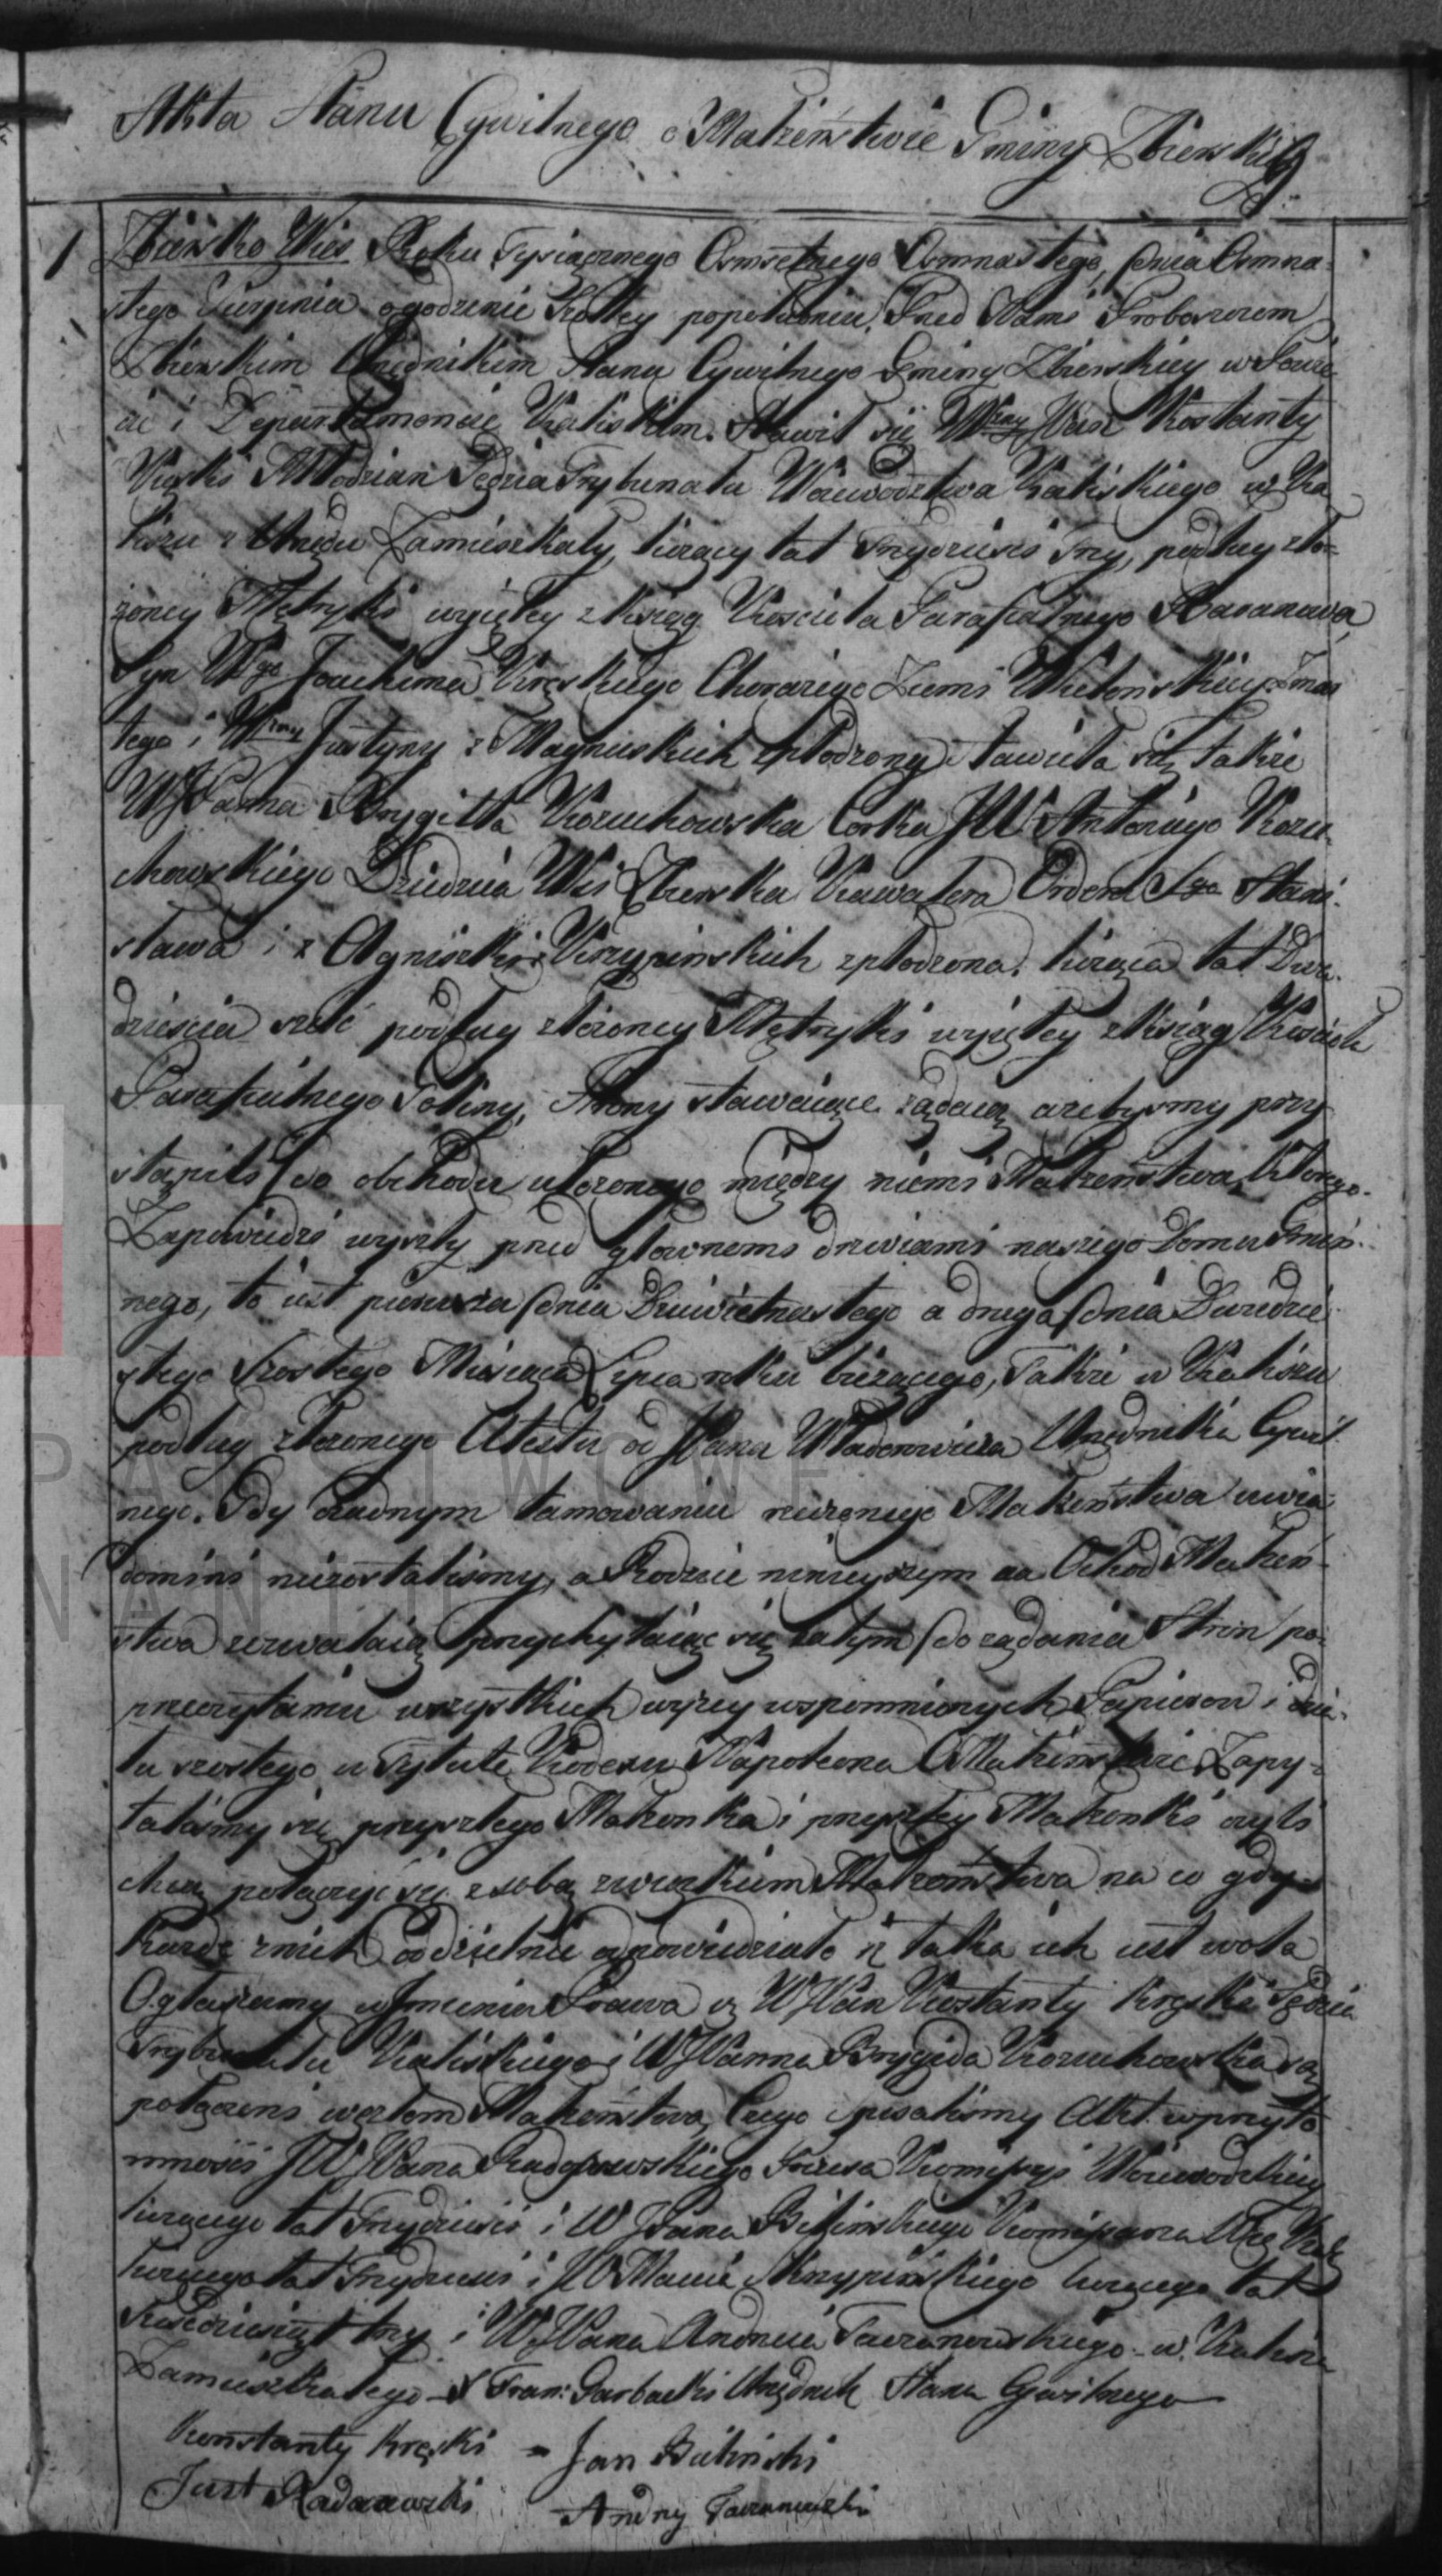 Akta Stanu Cywilnego o Małżeństwie Gminy Zbierskiey
1
Zbiersko Wieś Roku Tysiącznego Osmsetnego Osmnastego, dnia Osmna-
stego Sierpnia o godzinie szostey popołudniu, Przed Nami Proboszczem
Zbierskim Urzędnikim Stanu Cywilnego Gminy Zbierskiey w Powie
cie i Departamencie Kaliskim. Stawił się Wny JPan Kostanty
Kręski Młodzian Sędzia Trybunału Woiewodztwa Kaliskiego w Ka
liszu z Urzędu Zamieszkały, liczący lat Trzydzieści trzy, podług zło-
żoney Metryki wyiętey z ksiąg Kościoła Parafialnego
Syn Wgo Joachima Kręskiego Chorążego Ziemi Wieluńskiey Zmar
łego i Wney Justyny z Magnuskich spłodzony stawiła się także
WJPanna Brygitta Kożuchowska Corka JW Antoniego Kożu-
chowskiego Dziedzica Wsi Zbierska Kawalera Orderu Sgo Stani-
sława i z Agniszki Skrzypinskich spłodzona, licząca lat Dwa-
dzieścia sześć podług złożoney Metryki wyiętey z ksiąg Kościoła
Parafialnego Strony stawaiące żądaią ażebyśmy przy
stąpili do obchodu ułożonego między niemi Małżeństwa, którego
Zapowiedzi wyszły przed głownemi drzwiami naszego Domu Gmin-
nego, to iest pierwsza dnia Dziewiętnastego a druga dnia Dwudzie-
stego szostego Miesiąca Lipca roku bieżącego, Także w Kaliszu
podług złożonego Atestu od JPana Urzędnika Cywil-
nego, Gdy żadnym tamowaniu rzeczonego Małżeństwa uwia-
domini niezostaliśmy, a Rodzice ninieyszym na Obchod Małżeń-
stwa zezwalaią przychylaiąc się zatym do żądania Stron po
przeczytaniu wszystkich wyżey wspomnionych Papierow i dzia-
łu szostego w Tytule Kodexu Napoleona O Małżeństwie Zapy-
taliśmy się przyszłego Małżonka i przyszłey Małżonki czyli
chcą połączyć się z sobą związkiem Małżeństwa na co gdy
każde z nich oddzielnie odpowiedziało iż taka ich iest wola
Ogłaszamy w Jmieniu Prawa iż WJPan Kostanty Kręski Sędzia
Trybunału Kaliskiego i WJPanna Brygida Kożuchowska są
połączeni węzłem Małżeństwa, Czego spisaliśmy Akt w przyto
mności JWJPana Radoszewskiego Prezesa Komissyi Woiewodzkiey
liczącego lat Trzydzieści i WJPana Bilinskiego Kommissarza
liczącego lat Trzydzieści i W Macieia Skrzypińskiego liczącego lat
trzy i WJPana Andrzeia Taczanowskiego w Kaliszu
Zamieszkałego X Fran: Garbacki Urzędnik Stanu Cywilnego
Konstanty Kręski Jan Biliński
Just Andrzy Taczanowski